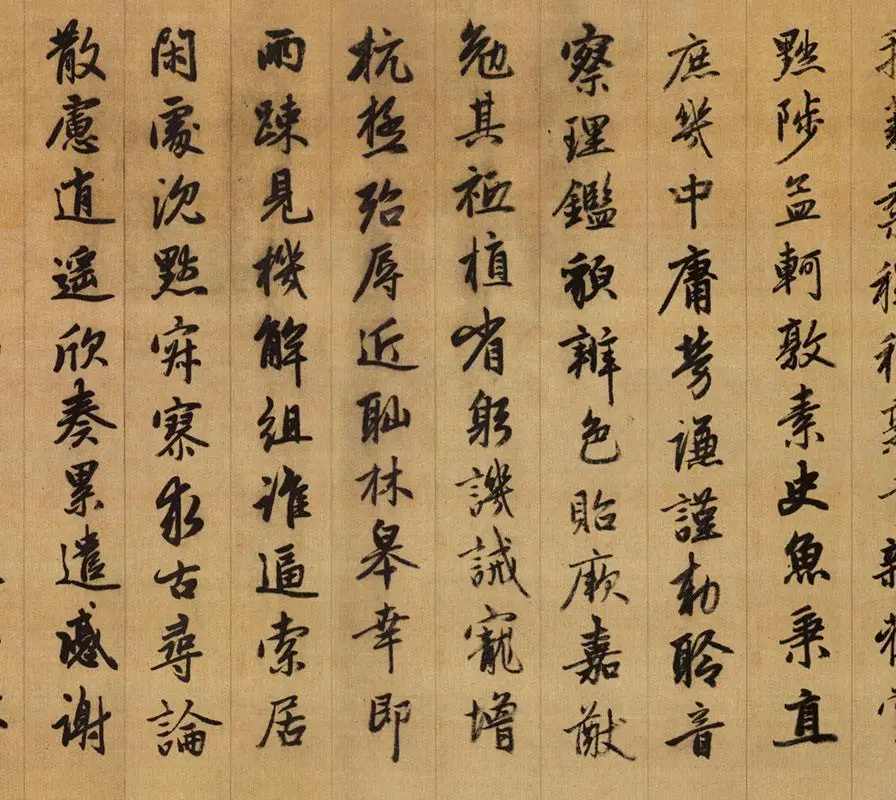 黜陟孟軻敦素史魚秉直
庶幾中庸勞謙謹勅聆音
察理鑑貌辨色貽厥嘉猷
勉其祗植省躬譏誡寵增
抗極殆辱近耻林皋幸即
兩踈見機解組誰逼索居
閑處沉默寂寥求古尋論
散慮逍遥欣奏累遣慼謝